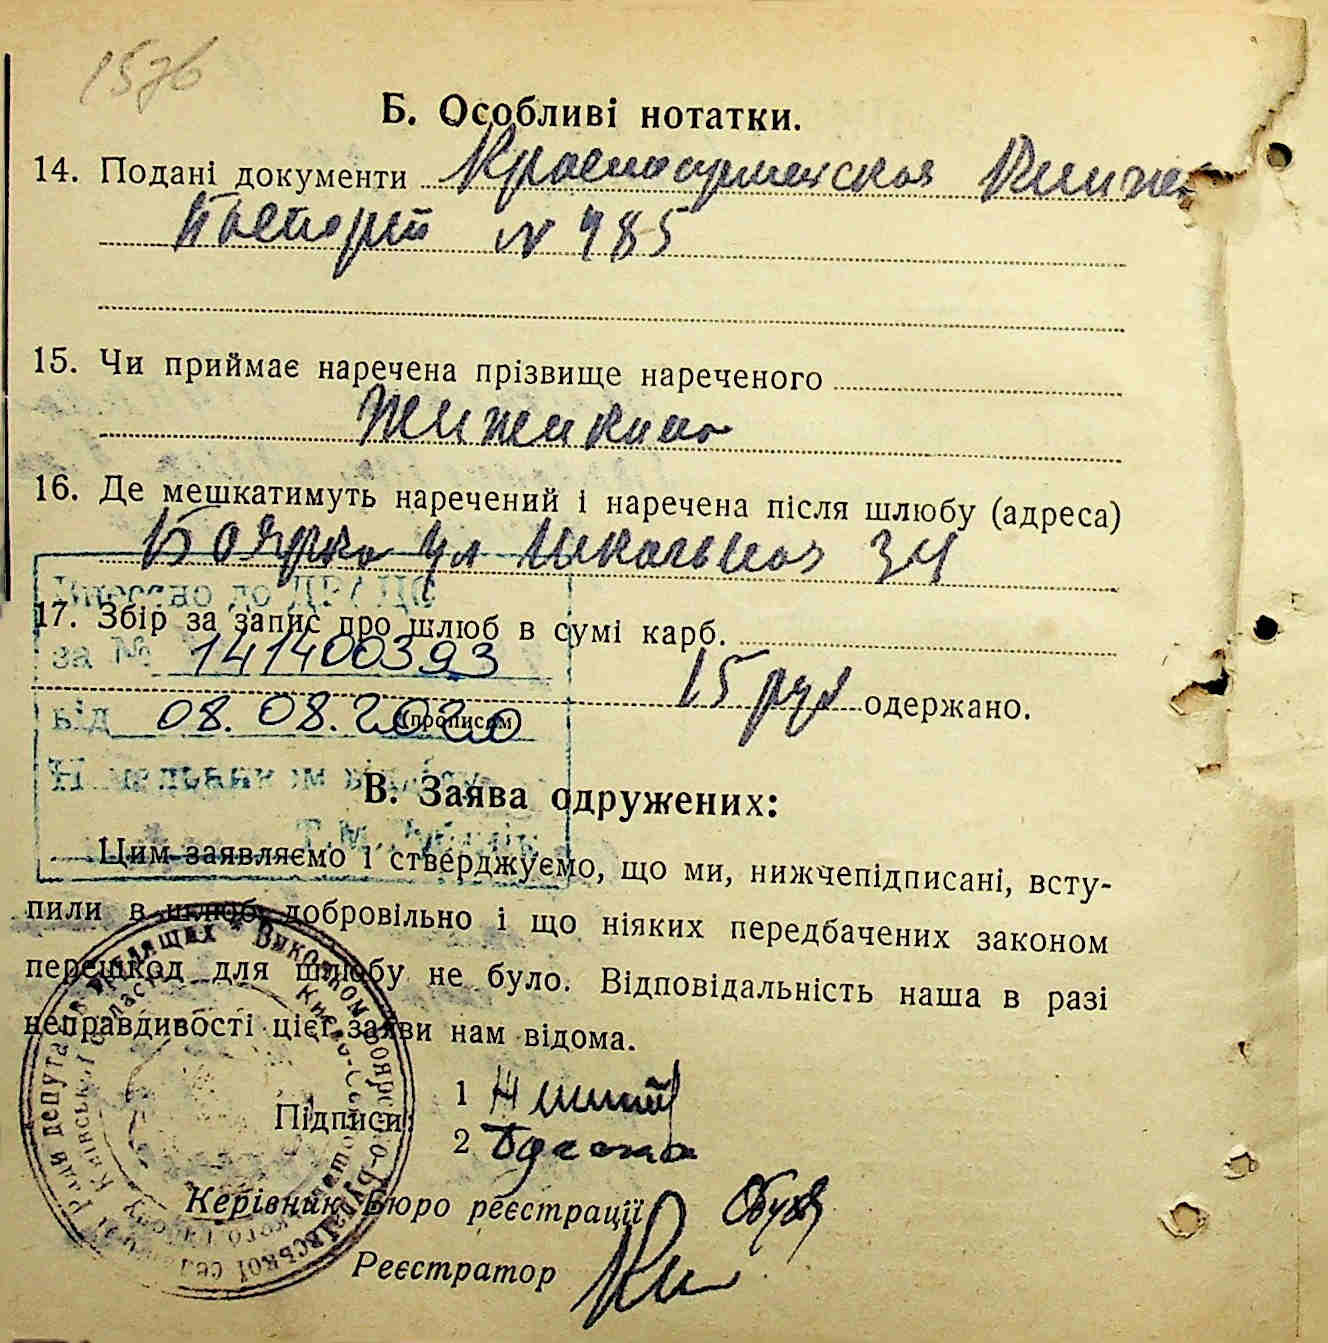 157б
Б. Особливі нотатки.
14. Подані документи Красноармейская
Паспорт № 485
15. Чи приймає наречена прізвище нареченого
16. Де мешкатимуть наречений і наречена після шлюбу (адреса)
Боярка ул Школьная 34
17. Збір за запис про шлюб в сумі карб.
за № 141400393
15 руб одержано.
від 08.08.2020 (прописом)
В. Заява одружених:
Цим заявляємо і стверджуємо, що ми, нижчепідписані, всту-
пили в шлюб добровільно і що ніяких передбачених законом
перешкод для шлюбу не було. Відповідальність наша в разі
неправдивості цієї заяви нам відома.
Підписи: 1
2
Керівник Бюро реєстрації
Реєстратор
Ради депутатів трудящих * Виконком Боярсько-Будаївської
Київської області Києво-Святошинського району